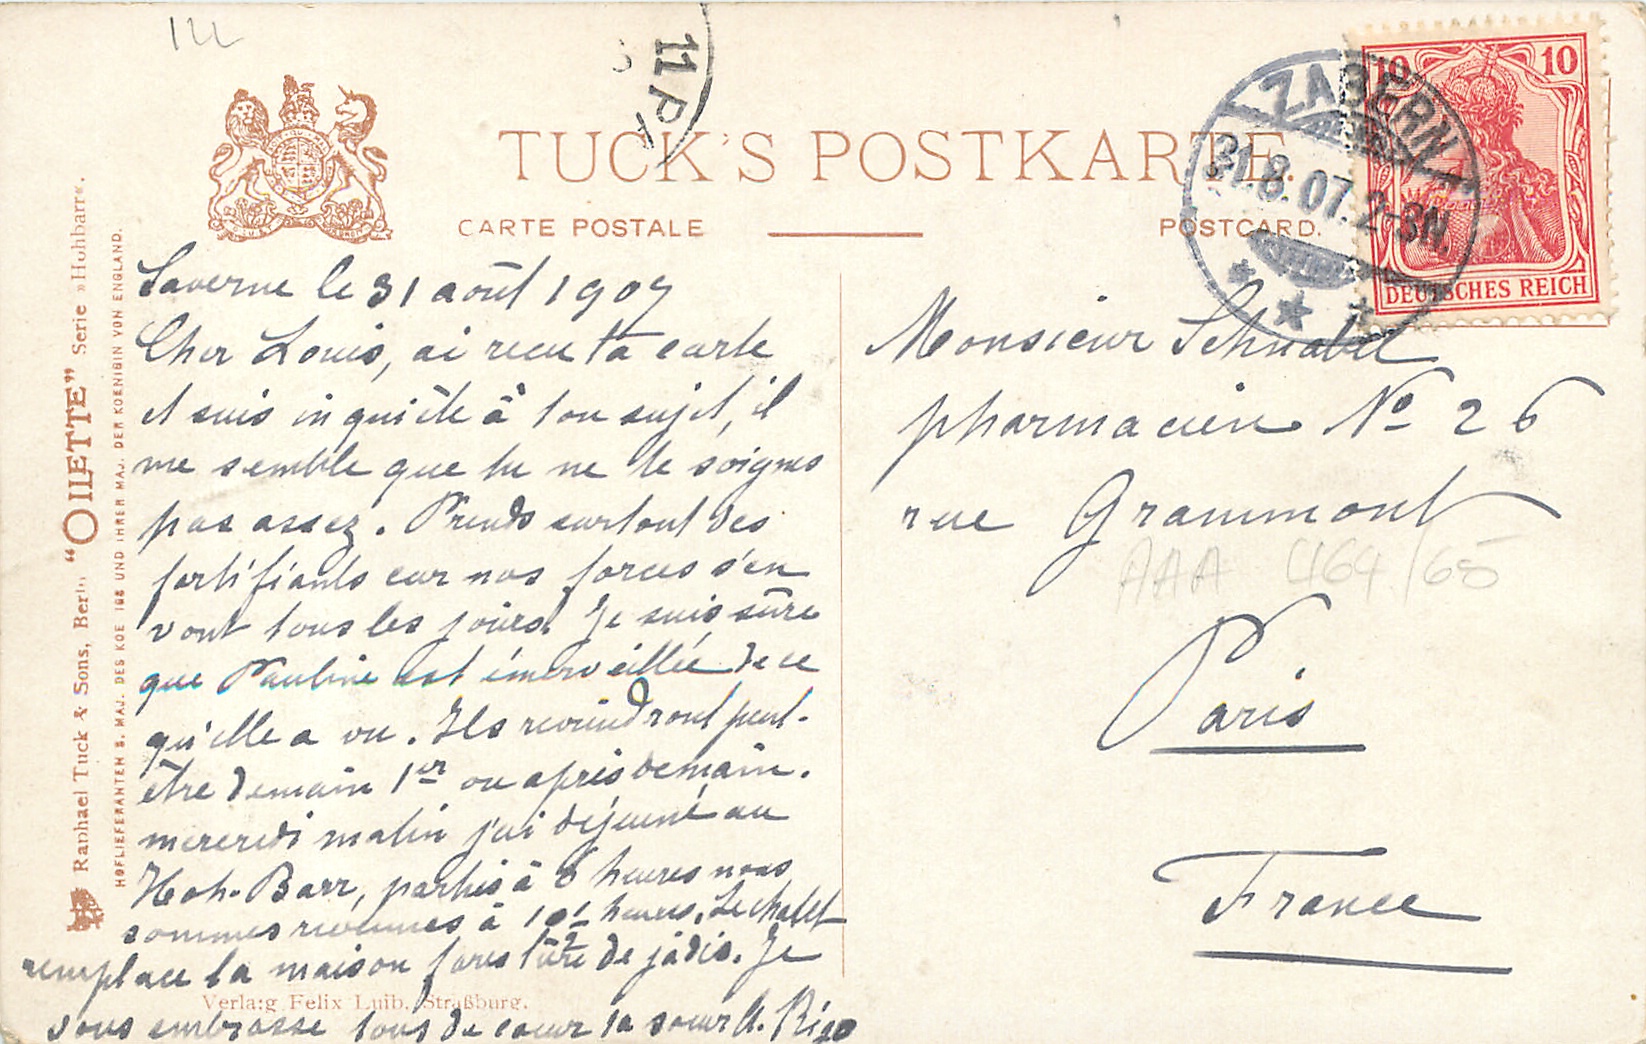 TUCK'S POSTKARTE.
CARTE POSTALE
POSTCARD.
11 P
ZABERN
31.8.07. 2-3N.
10 10
DEUTSCHES REICH
Raphael Tuck & Sons, Berlin "OILETTE" Serie »Hohbarr«.
HOFLIEFERANTEN S. MAJ. DES KOE IGS UND IHRER MAJ. DER KOENIGIN VON ENGLAND.
Saverne le 31 août 1907
Cher Louis, ai recu ta carte
et suis inquiète à ton sujet, il
me semble que tu ne te soignes
pas assez. Prends surtout des
fortifiants car nos forces s'en
vont tous les jours. Je suis sûre
que Pauline est émerveillée de ce
qu'elle a vu. Ils reviendront peut-
être demain 1er ou après demain.
mercredi matin j'ai déjeuné au
Hoh-Barr, parties à 8 heures nous
sommes revenues à 10½ heures. Le chalet
remplace la maison forestière de jadis. Je
vous embrasse tous de coeur ta soeur A.
Verlag Felix Luib. Straßburg.
Monsieur Schnabel
pharmacien No 26
rue Grammont
AAA 464/65
Paris
France